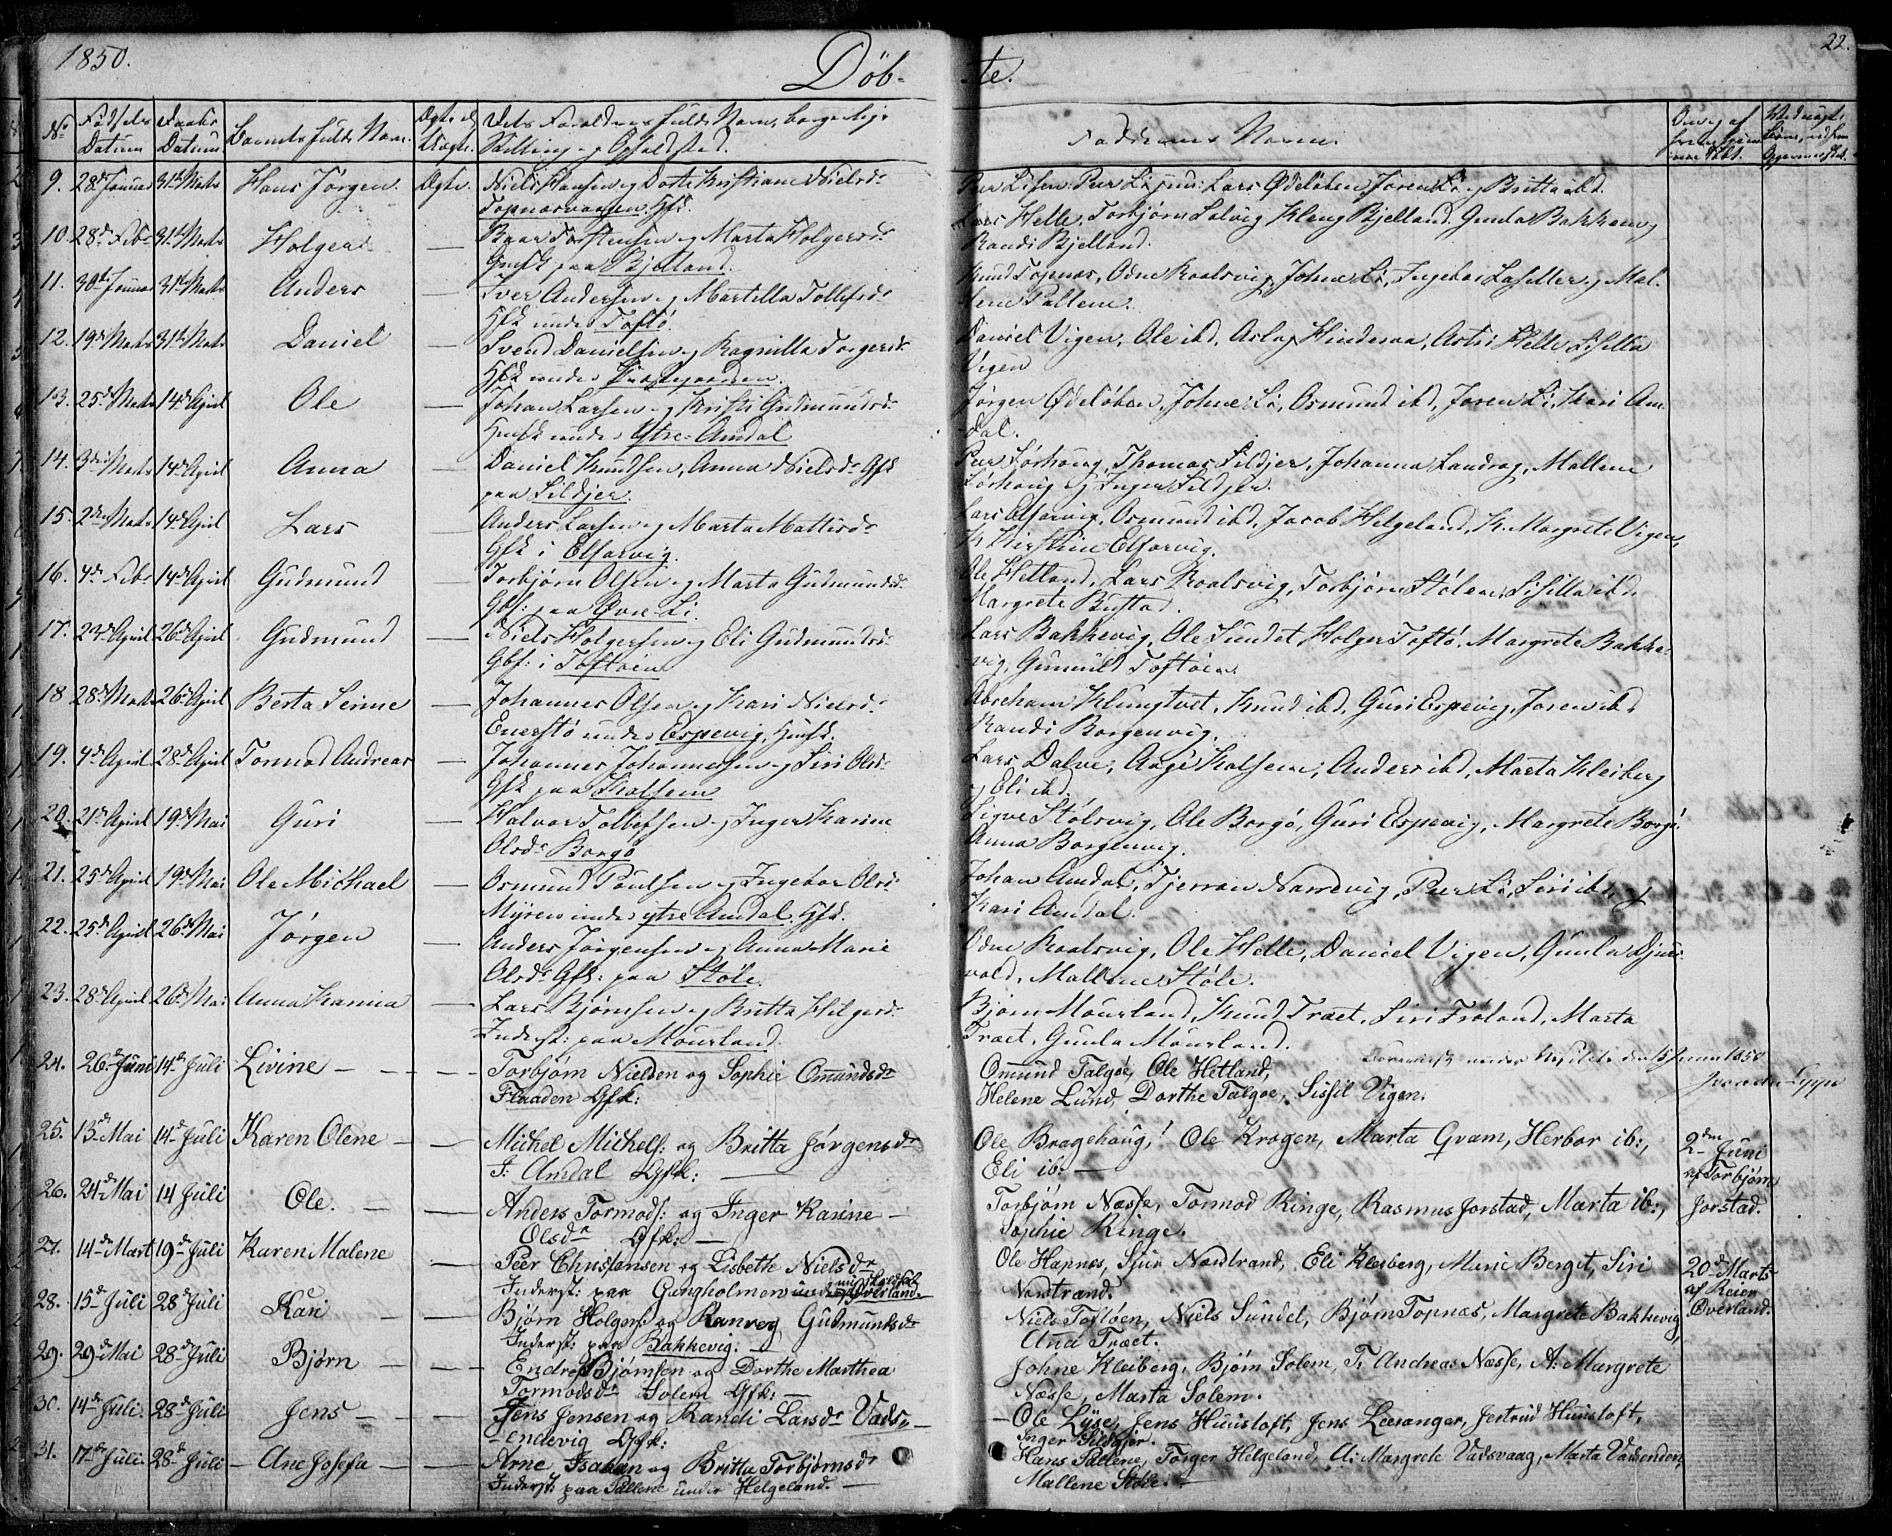 1850.
Døb-
te.
22.
No
Fødsels Datum
Daabs Datum
Barnets fulde Navn.
Ægte eller Uægte.
Dets Forældres fulde Navn, borgerlige
Stilling og Opholdsted.
Faddernes Navne.
9. 28de Januar 31te Marts Hans Jørgen. Ægte. Niels Hansen og Dorte Kristiane Nielsdr
Topnæsvaagen. Hfd.
10. 28de Febr 31te Marts Holger — Baar Torstensen og Marta Holgersdr
Gmfk paa Bjelland.
Lars Helle, Torbjørn Solvig, Kleng Bjelland, Gunla Bakken og
Randi Bjelland.
11. 30te Januar 31te Marts Anders — Iver Andersen og Martilla Tollefsdr
Hfk under Toftø.
12. 19de Marts 31te Marts Daniel — Svend Danielsen og Ragnilla Torgersdr
Hfk under Præstegaarden.
Daniel Vigen, Ole ibd, Aslag Hinderaa, Astri Helle, Sisilla
Vigen
13. 25de Marts 14de April Ole — Johan Larsen og Kristi Gudmundsdr
Hmfk under Ytre-Amdal
Jørgen Ødeløben, Johne Li, Osmund ibd, Joren Li, Kari Am-
dal.
14. 3die Marts 14de April Anna — Daniel Knudsen, Anna Nielsdr Gfk
paa Sildjer.
15. 2den Marts 14de April Lars — Anders Larsen og Marta Mattisdr
Gfk i Elfarvig.
Lars Elfarvig, Osmund ibd, Jacob Helgeland, K. Margrete Vigen,
K. Kirstine Elfarvig.
16. 4de Febr 14de April Gudmund — Torbjørn Olsen og Marta Gudmundsdr
Gbf: paa Øvre-Li.
Ole Hetland, Lars Roalsvig, Torbjørn Stølen, Sisilla ibd,
Margrete Bustad.
17. 23de April 26de April Gudmund — Niels Holgersen og Eli Gudmundsdr
Gbf: i Toftøen
Lars Bakkevig, Ole Sundet, Holger Toftø, Margrete Bakke-
vig, Gunnild Toftøen.
18 28de Marts 26de April Berta Serine — Johannes Olsen og Kari Nielsdr
Enerstø under Espevig, Hmfk.
Abraham Klungtvet, Knud ibd, Guri Espevig, Joren ibd,
Randi Borgenvig.
19. 4de April 28de April Tormod Andreas — Johannes Johannesen og Siri Olsdr
Gfk paa Kolsem
Lars Dalve, Aage Kolsem, Anders ibd, Marta Kleiberg
og Eli ibd.
20. 21de April 19de Mai Guri — Halvor Tollefsen og Inger Karine
Olsdr Borgø
Sigve Stølsvig, Ole Borgø, Guri Espevig, Margrete Borgø,
Anna Borgenvig.
21. 25de April 19de Mai Ole Michael — Osmund Poulsen og Ingebor Olsdr
Myren under ytre Amdal Hfk.
Johan Amdal, Tjerran Narrevig, Peer Li, Siri ibd, og
Kari Amdal.
22. 25de April 26de Mai Jørgen — Anders Jørgensen og Anna Marie
Olsdr Gfk: paa Støle.
Odne Roalsvig, Ole Helle, Daniel Vigen, Gunla Djuu-
vold, Mallene Støle.
23. 28de April 26de Mai Anna Karina — Lars Bjørnsen og Britta Holgersdr
Inderst: paa Mourland.
Bjørn Mourland, Knud Træet, Siri Frøland, Marta
Træet, Gunla Mourland.
24. 26de Juni 14de Juli Livine — — — Torbjørn Nielsen og Sophie Omundsdr
Flaaden Gfk:
Omund Talgøe, Ole Hetland,
Helene Lund, Dorthe Talgøe, Sissil Vigen.
25. 13de Mai 14de Juli Karen Olene — — Michel Michels: og Britta Jørgensdr
I: Amdal Gfk:
Ole Bragehaug, Ole Krogen, Marta Gram, Herbor ib:,
Eli ib: —
2den Juni
af Torbjørn
Jorstad.
26. 24de Mai 14 Juli Ole. — — Anders Tormods: og Inger Karine —
Olsdr Gfk: —
Torbjørn Næsse, Tormod Ringe, Rasmus Jorstad, Marta ib:,
Sophie Ringe.
27. 14de Mart 19de Juli Karen Malene — Peer Christensen og Lisbeth Nielsdr
Inderst: paa Gungholmen under Øverland
Ole Hapnes, Sjur Nordtrand, Eli Kleiberg, Marie Berget, Siri
Nordtrand.
20de Marts
af Reier
Øverland.
28. 15de Juli 28 Juli Kari — — Bjørn Holgers: og Ranveg Gudmundsdr
Inderst: paa Bakkevig: —
Niels Toftøen, Niels Sundet, Bjørn Topnæs, Margrete Bakkevig,
Ana Træet.
29. 29de Mai 28de Juli Bjørn — — Endre Bjørnsen og Dorthe Marthea
Tormodsdr Solem Gfk: —
Johne Kleiberg, Bjørn Solem, T. Andreas Næsse, A: Margrete
Næsse, Marta Solem.
30. 14de Juli. 28de Juli Jens — — — Jens Jensen og Randi Larsdr Vads —
— endevig Gfk:
— Ole Lyse, Jens Huustoft, Jens Leeranger, Jertrud Huustoft,
Inger Sildgjer.
31. 17de Juli. 28de Juli — Ane Josefa — — Arne Isaksen og Britta Torbjørnsdr
Inderst: paa Pallene under Helgeland. —
Hans Pallene, Torger Helgeland, A: Margrete Vadsvaag, Marta Vadsenden,
Mallene Støle.